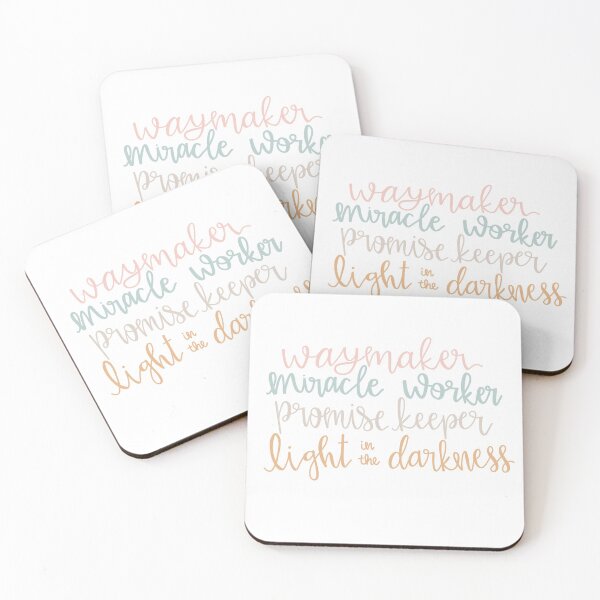 waymaker
miracle worker
promise keeper
waymaker
miracle worker
promise keeper
light in the darkness
waymaker
miracle worker
promise keeper
light in the darkness
waymaker
miracle worker
promise keeper
light in the darkness